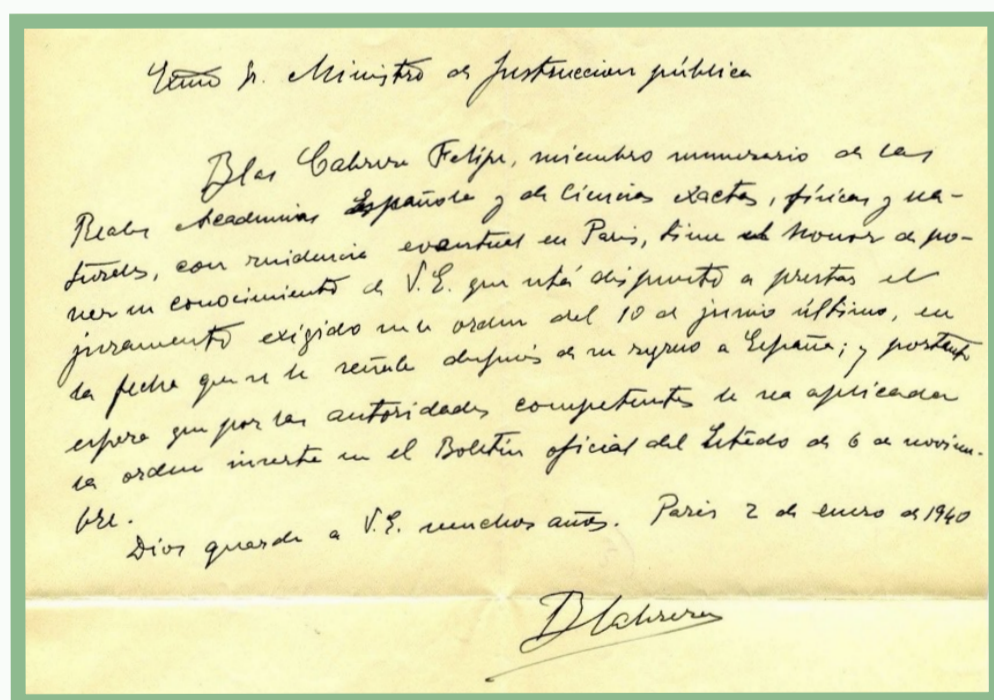 Exmo Sr. Ministro de Instruccion pública
Blas Cabrera Felipe, miembro numerario de las
Reales Academias Española y de Ciencias exactas, físicas y na-
turales, con residencia eventual en Paris, tiene el honor de po-
ner en conocimiento de V.E. que está dispuesto a prestar el
juramento exigido en la orden del 10 de junio último, en
la fecha que se le señale después de su regreso a España; y portanto
espera que por las autoridades competentes le sea aplicada
la orden inserta en el Boletin oficial del Estado de 6 de noviem-
bre.
Dios guarde a V.E. muchos años. Paris 2 de enero de 1940
B Cabrera